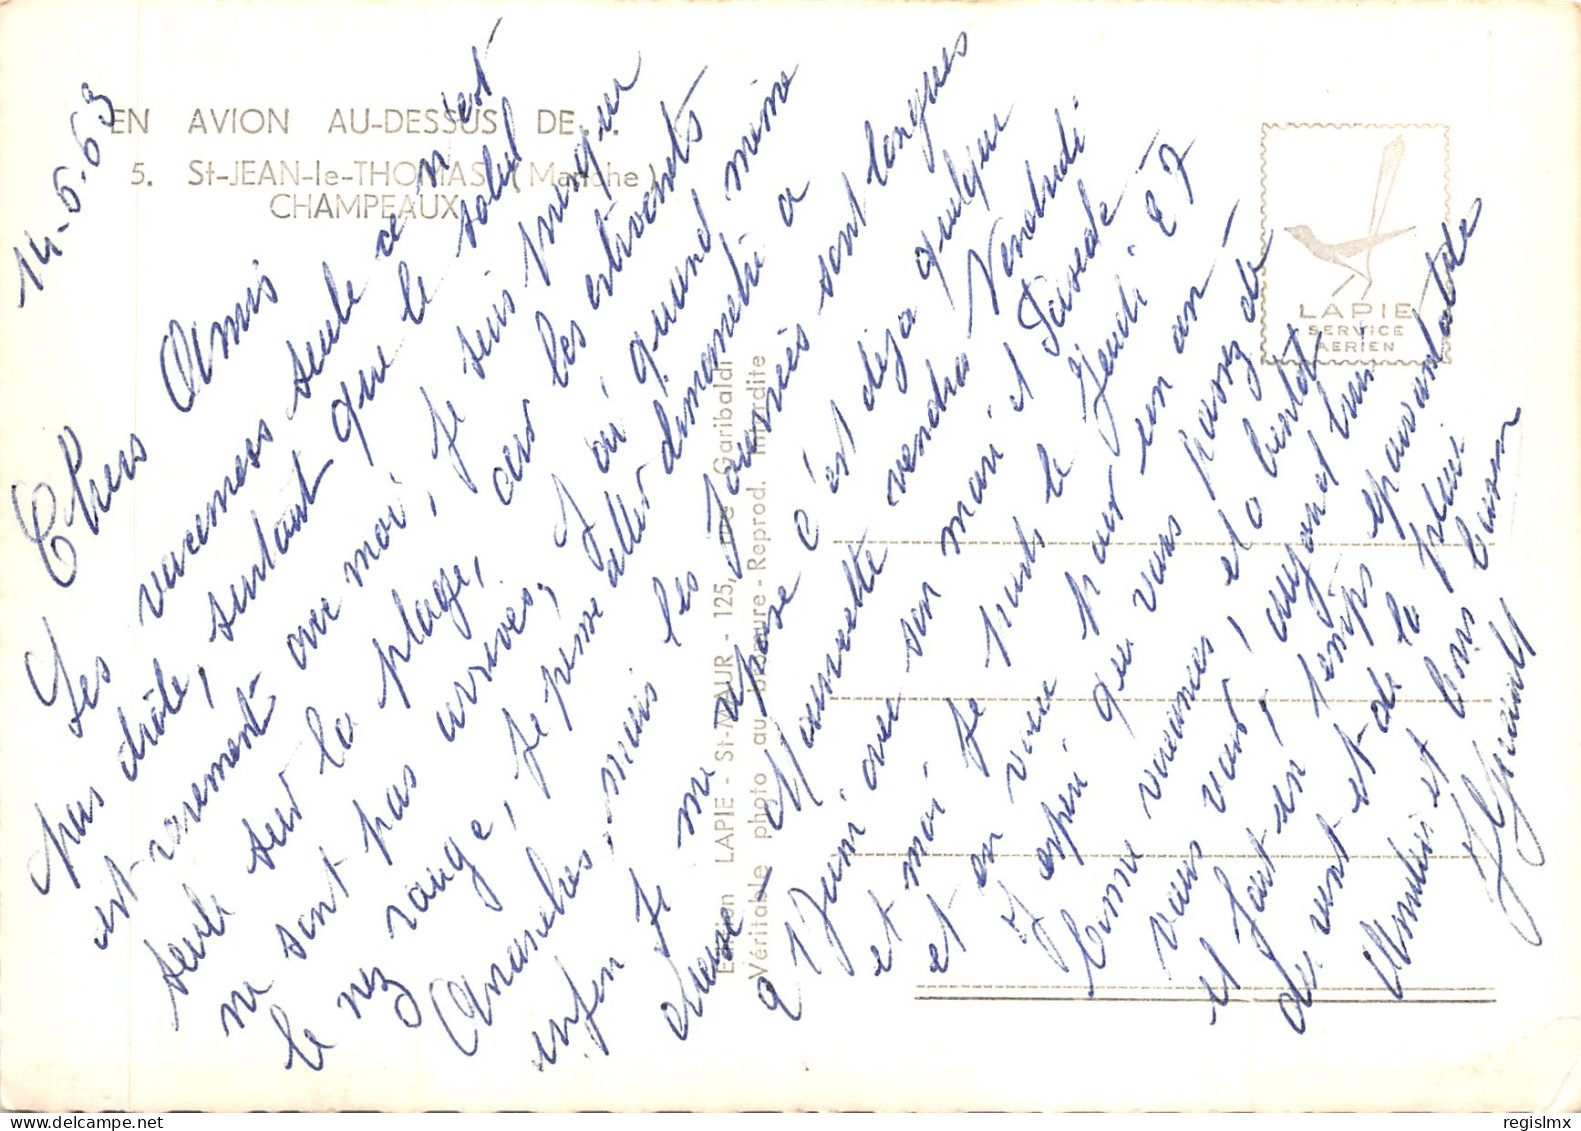 EN AVION AU-DESSUS DE...
5. St-JEAN-le-THOMAS (Manche)
CHAMPEAUX
14-6-63
Chers Amis
Les vacances seule ce n'est
pas drôle, surtout que le soleil
est rarement avec moi, je suis presque
seule sur la plage, car les estivants
ne sont pas arrivés, j'ai quand même
le nez rouge, je pense aller dimanche à
Avranches, mais les journées sont longues
enfin je me repose c'est déjà quelque
chose - Mauricette viendra Vendredi
21 Juin avec son mari et
et moi je pars le Jeudi 27
et en voila pour un an
J'espère que vous passez de
bonnes vacances, et a bientot
vous voir, aujourd'hui
il fait un temps épouvantable
du vent et de la pluie
Amitiés et bons baisers
Edition LAPIE - St-MAUR - 125, rue Garibaldi
Véritable photo au bromure - Reprod. interdite
LAPIE
SERVICE
AERIEN
regislmx